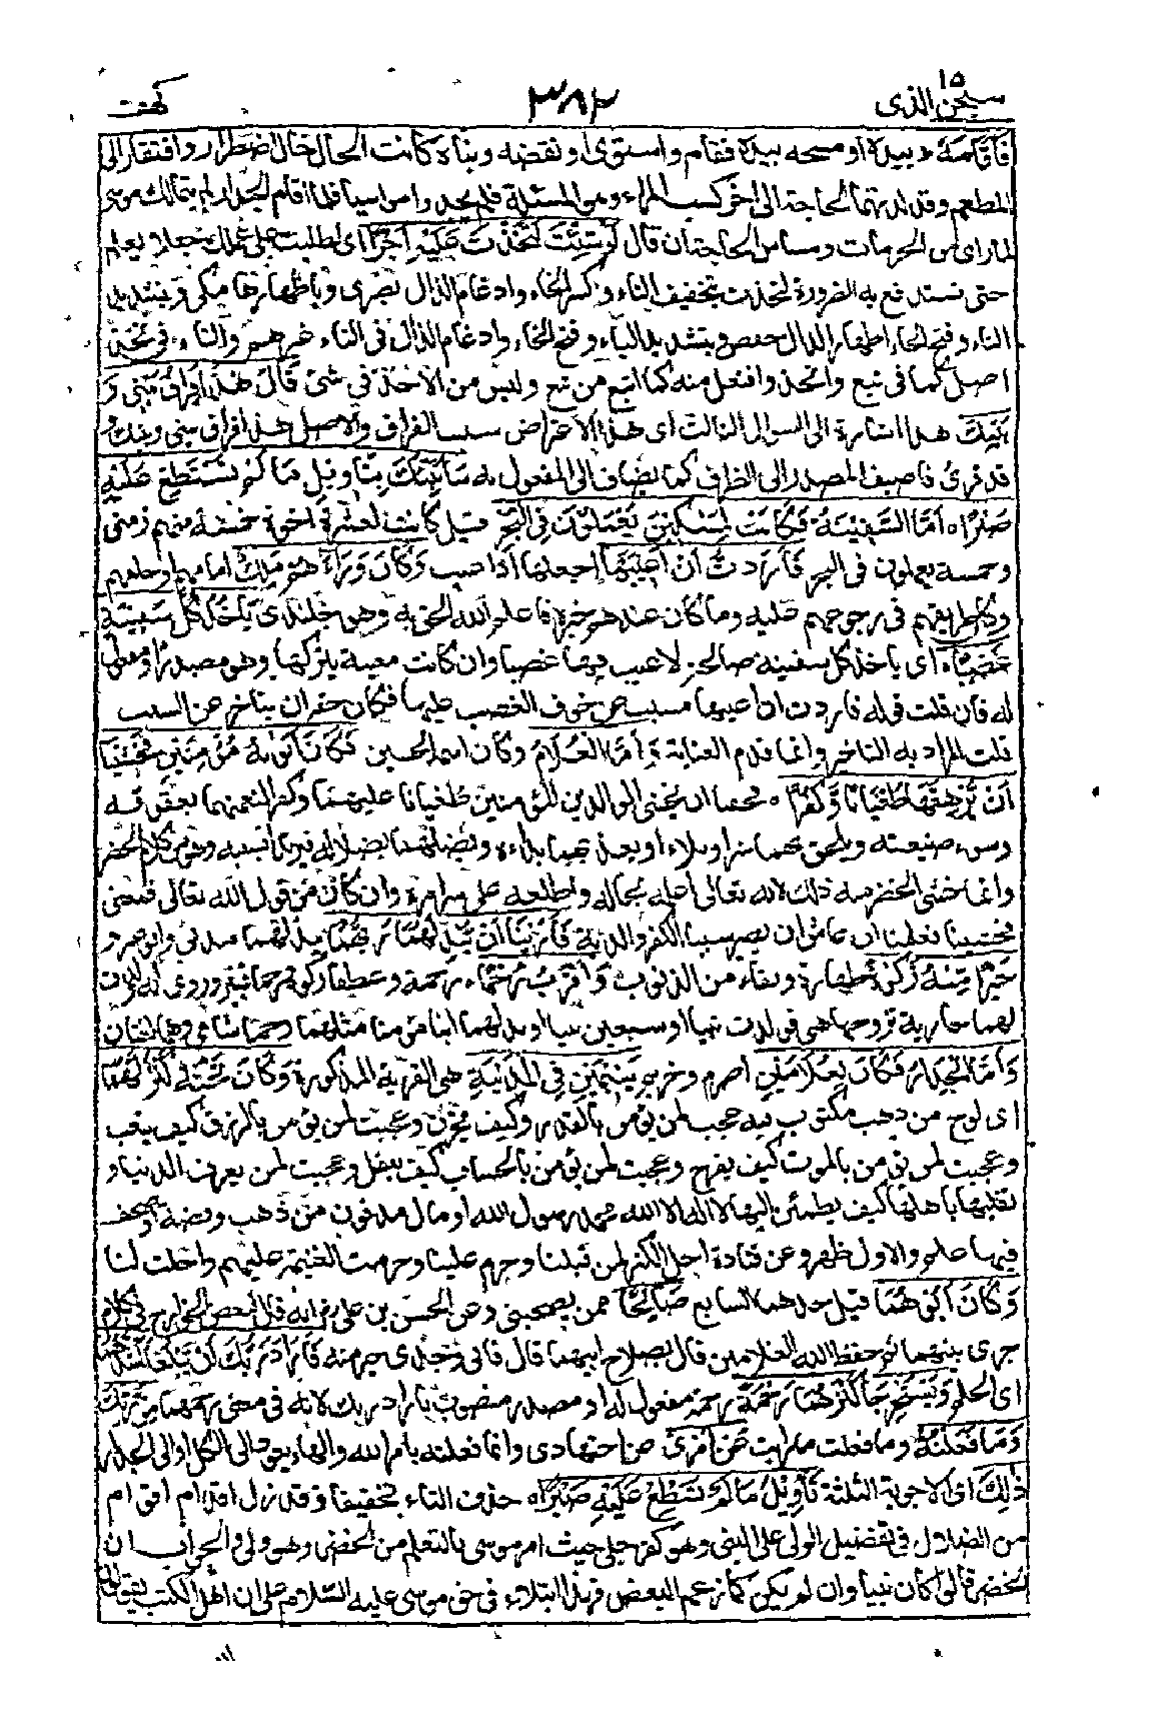 ١٥
سبحن الذى
٣٨٢
كهف
فَأَقَامَهُ بيده او مسحه بيده فقام واستوى او نقضه وبناه كانت الحال حال اضطرار وافتقار الى
المطعم وقد لزتهما الحاجة الى اخر كسب المرء وهو المسئلة فلم يجدا مواسيا فلما اقام الجدار لم يتمالك موسى
لما راى من الحرمان ومساس الحاجة ان قال لَوْ شِئْتَ لَتَّخَذْتَ عَلَيْهِ اَجْرًا اى لطلبت على عملك جعلا
حتى نستدفع به الضرورة لتخذت بتخفيف التاء وكسر الخاء وادغام الذال بصرى وباظهارها مكى وبتشديد
التاء وفتح الخاء واظهار الذال حفص وبتشديد التاء وفتح الخاء وادغام الذال فى التاء غيرهم والتاء فى تخذ
اصل كما فى تبع واتخذ وافتعل منه كما اتبع من تبع وليس من الاخذ فى شئ قَالَ هٰذَا فِرَاقُ بَيْنِى وَ
بَيْنِكَ هذا اشارة الى السوال الثالث اى هذا الاعتراض سبب الفراق والاصل هذا فراق بينى وبينك و
قد قرئ فاضيف المصدر الى الظرف كما يضاف الى المفعول به سَاُنَبِّئُكَ بِتَاْوِيْلِ مَا لَمْ تَسْتَطِعْ عَلَيْهِ
صَبْرًا اَمَّا السَّفِيْنَةُ فَكَانَتْ لِمَسٰكِيْنَ يَعْمَلُوْنَ فِى الْبَحْرِ قيل كانت لعشرة اخوة خمسة منهم زمنى
وخمسة يعملون فى البحر فَاَرَدْتُّ اَنْ اَعِيْبَهَا اجعلها ذات عيب وَكَانَ وَرَآءَهُمْ مَلِكٌ امامهم او خلفهم
وكان طريقهم فى رجوعهم عليه وما كان عندهم خبره فاعلم الله الخضر به وهو جلندى يَاْخُذُ كُلَّ سَفِيْنَةٍ
غَصْبًا اى ياخذ كل سفينة صالحة لا عيب فيها غصبا وان كانت معيبة يتركها وهو مصدر او مفعول
له فان قلت قوله فاردت ان اعيبها مسبب عن خوف الغصب عليها فكان حقه ان يتاخر عن السبب
قلت المراد به التاخير وانما قدم للعناية وَاَمَّا الْغُلٰمُ وكان اسمه الحسين فَكَانَ اَبَوٰهُ مُؤْمِنَيْنِ فَخَشِيْنَا
اَنْ يُّرْهِقَهُمَا طُغْيَانًا وَّكُفْرًا فخفنا ان يغشى الوالدين المؤمنين طغيانا عليهما وكفرا لنعمتهما بعقوقه
وسوء صنيعته ويلحق بهما شرا وبلاء او يعذبهما بدائه ويضلهما بضلاله فيرتدا بسببه وهو من كلام الخضر
وانما خشى الخضر منه ذلك لانه تعالى اعلمه بحاله واطلعه على سر امره وان كان من قول الله تعالى فمعنى
فخشينا فعلمنا ان عاش ان يصير سببا لكفر والديه فَاَرَدْنَآ اَنْ يُّبْدِلَهُمَا رَبُّهُمَا يبدلهما مدنى وابو عمرو
خَيْرًا مِّنْهُ زَكٰوةً طهارة ونقاء من الذنوب وَّاَقْرَبَ رُحْمًا رحمة وعطفا وزكوة ورحما تمييز وروى انه ولدت
لهما جارية تزوجها نبى فولدت نبيا او سبعين نبيا او ابدلهما ابنا مؤمنا مثلهما رحما شامى وهما لغتان
وَاَمَّا الْجِدَارُ فَكَانَ لِغُلٰمَيْنِ اصرم وصريم يَتِيْمَيْنِ فِى الْمَدِيْنَةِ هى القرية المذكورة وَكَانَ تَحْتَهٗ كَنْزٌ لَّهُمَا
اى لوح من ذهب مكتوب فيه عجبت لمن يؤمن بالقدر كيف يحزن وعجبت لمن يؤمن بالرزق كيف يتعب
وعجبت لمن يؤمن بالموت كيف يفرح وعجبت لمن يؤمن بالحساب كيف يغفل وعجبت لمن يعرف الدنيا و
تقلبها باهلها كيف يطمئن اليها لا اله الا الله محمد رسول الله او مال مدفون من ذهب وفضة او صحف
فيها علم والاول اظهر وعن قتادة احل الكنز لمن قبلنا وحرم علينا وحرمت الغنيمة عليهم واحلت لنا
وَكَانَ اَبُوْهُمَا قيل جدهما السابع صَالِحًا ممن يصحبنى وعن الحسين بن على رض انه قال لبعض الخوارج فى كلام
جرى بينهما بم حفظ الله الغلامين قال بصلاح ابيهما قال فابى وجدى خير منه فَاَرَادَ رَبُّكَ اَنْ يَّبْلُغَآ اَشُدَّهُمَا
اى الحلم وَيَسْتَخْرِجَا كَنْزَهُمَا رَحْمَةً رحمة مفعول له او مصدر منصوب باراد ربك لانه فى معنى رحمهما مِّنْ رَّبِّكَ
وَمَا فَعَلْتُهٗ وما فعلت ما رايت عَنْ اَمْرِىْ عن اجتهادى وانما فعلته بامر الله والهاء يعود الى الكل او الى الجدار
ذٰلِكَ اى الاجوبة الثلثة تَاْوِيْلُ مَا لَمْ تَسْطِعْ عَّلَيْهِ صَبْرًا حذف التاء تخفيفا وقد زل اقدام اقوام
من الضلال فى تفضيل الولى على النبى وهو كفر جلى حيث امر موسى بالتعلم من الخضر وهو ولى والجواب ان
الخضر قالوا كان نبيا وان لم يكن كما زعم البعض فهذا ابتلاء فى حق موسى عليه السلام على ان اهل الكتب يقولون